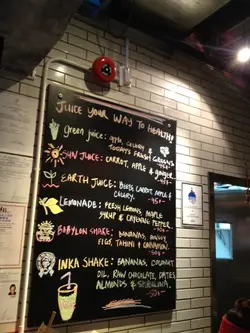 JUICE YOUR WAY TO HEALTHY
green juice: apple, celery &
TODAYS FRESH GREENS
SUN JUICE: CARROT, APPLE & ginger
EARTH JUICE: BEETS, CARROT, APPLE &
CELERY.
LEMONADE: FRESH LEMONS, MAPLE
SYRUP & CAYENNE PEPPER.
BABYLON SHAKE: BANANAS, HONEY,
FIGS, TAHINI & CINNAMON.
INKA SHAKE: BANANAS, COCONUT
OIL, RAW CHOCOLATE, DATES,
ALMONDS & SPIRULINA.